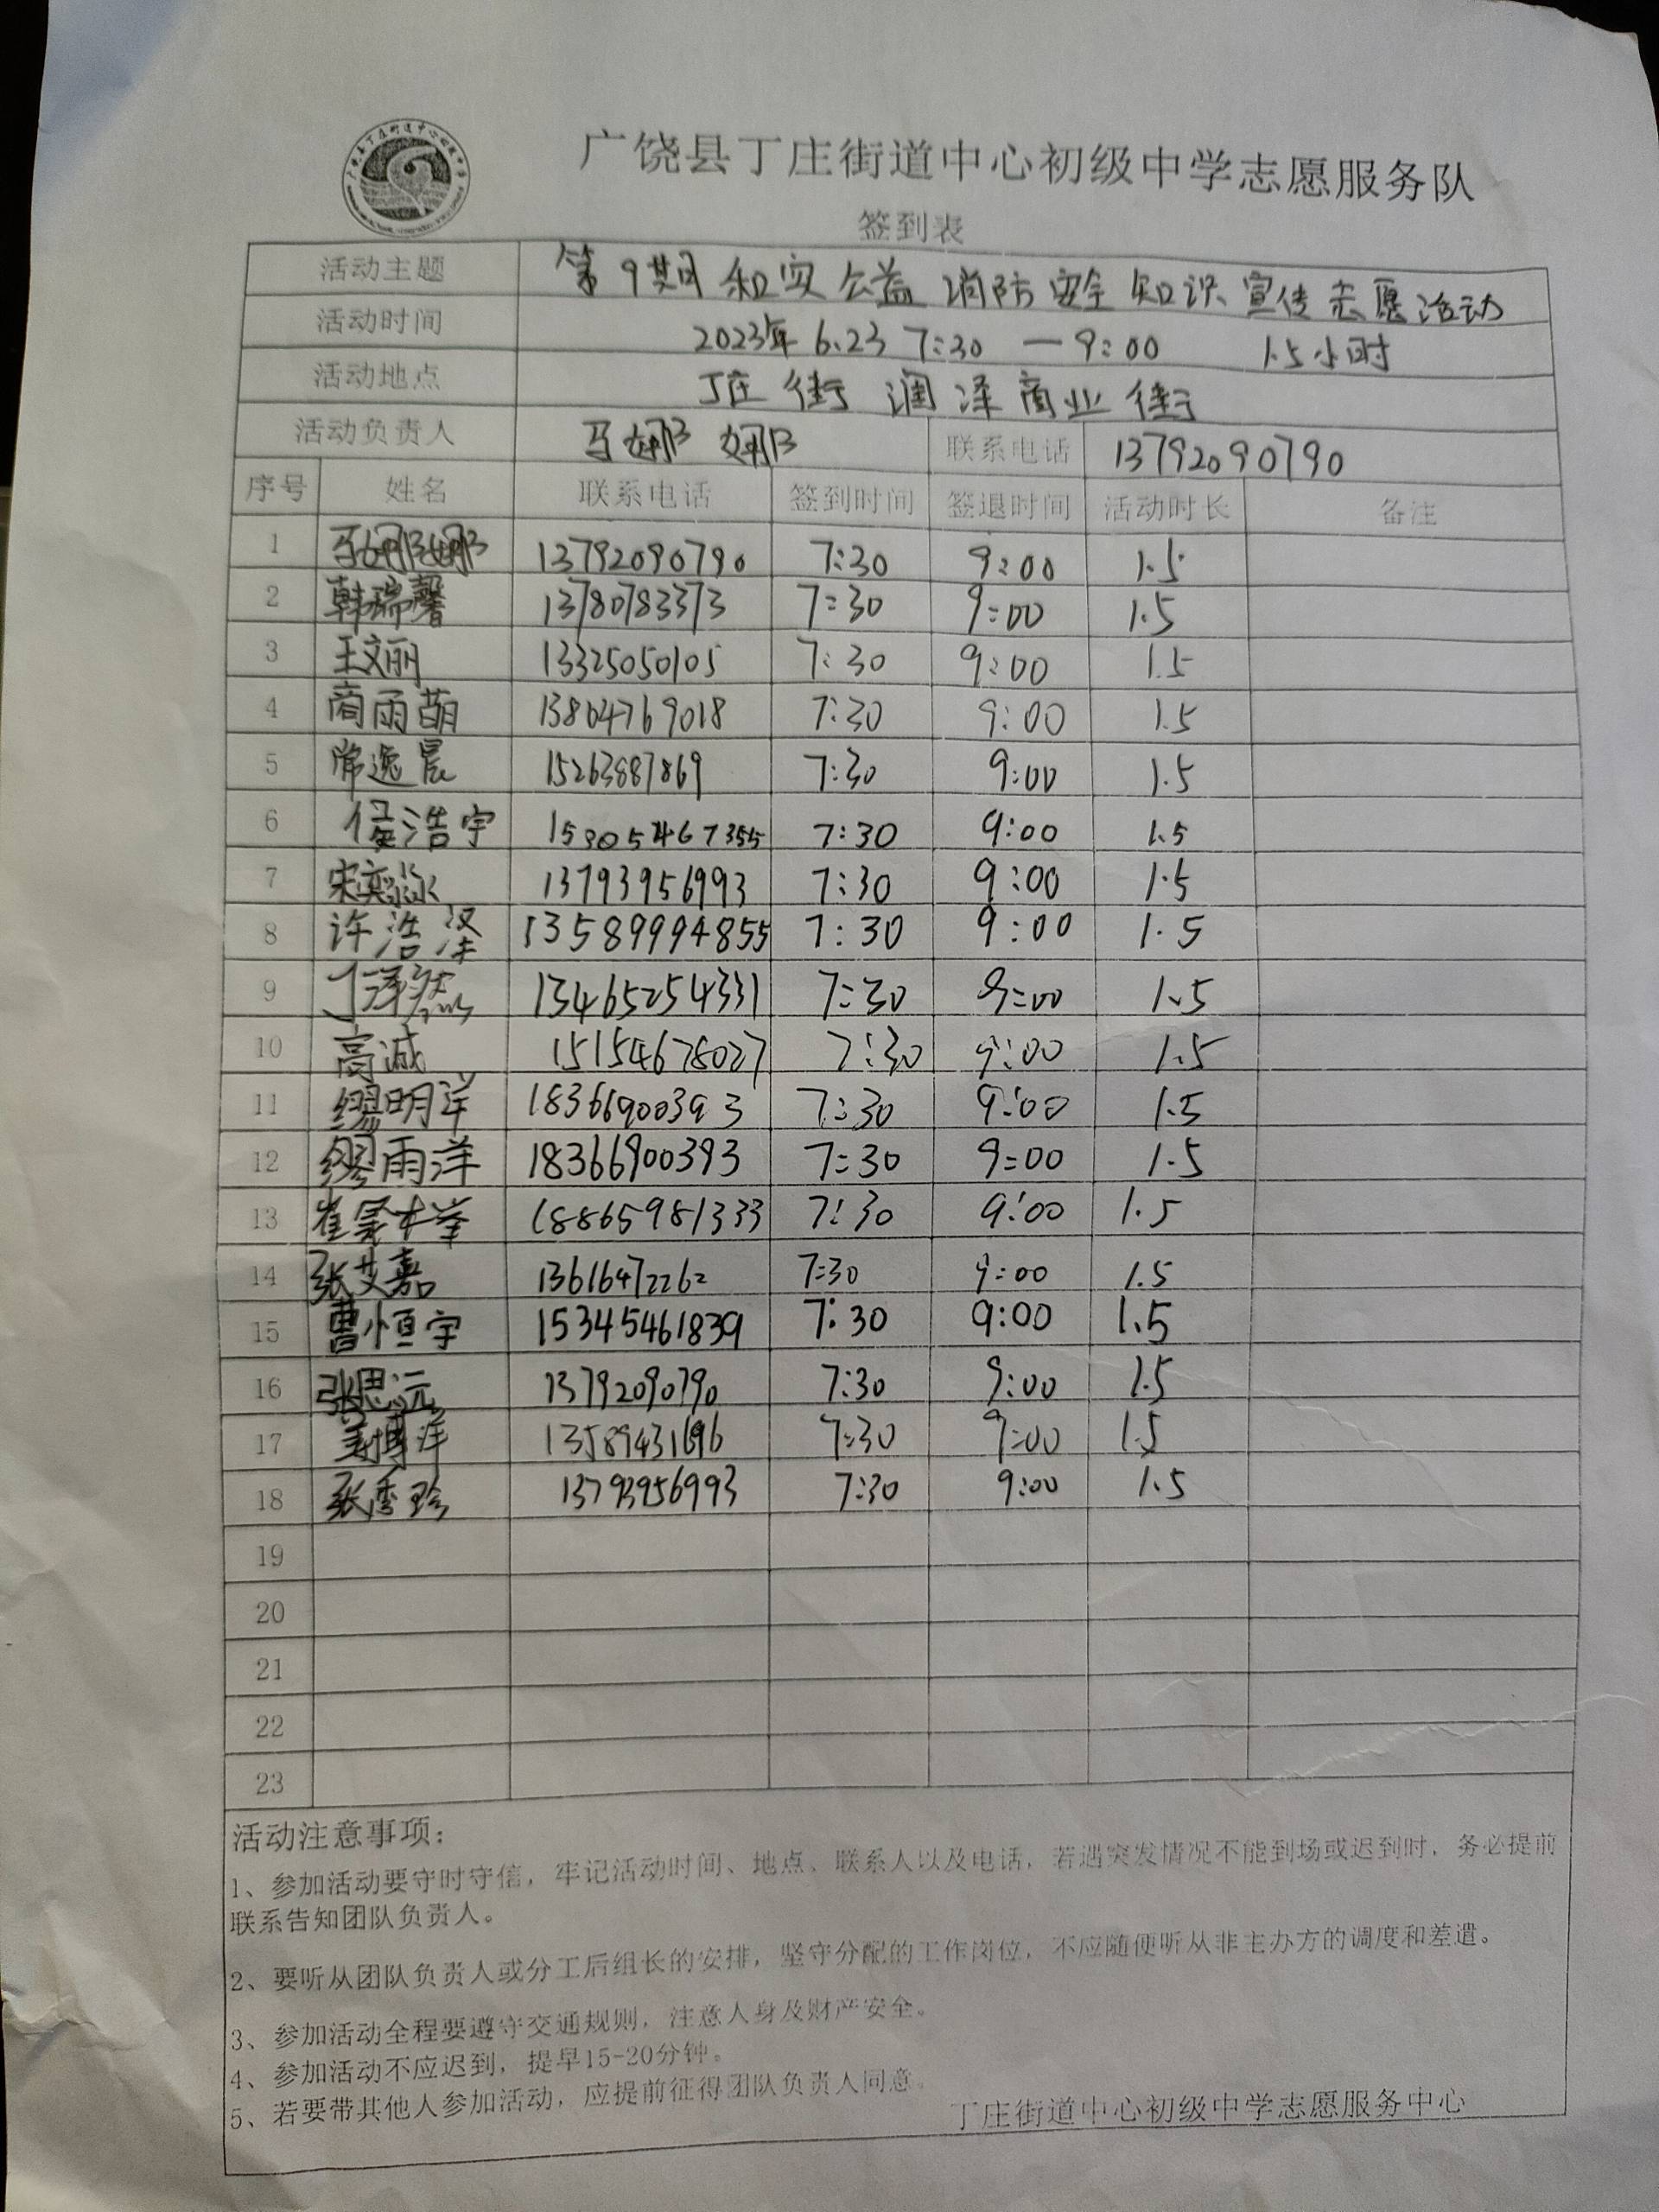 广饶县丁庄街道中心初级中学志愿服务队
签到表
活动主题 第9期和安公益消防安全知识宣传志愿活动
活动时间 2023年6.23 7:30 — 9:00 1.5小时
活动地点 丁庄街润泽商业街
活动负责人 马娜娜 联系电话 13792090790
序号 姓名 联系电话 签到时间 签退时间 活动时长 备注
1 马娜娜 13792090790 7:30 9:00 1.5
2 韩瑞馨 13780783373 7:30 9:00 1.5
3 王文丽 13325050105 7:30 9:00 1.5
4 商雨萌 13804769018 7:30 9:00 1.5
5 逸晨 15263887869 7:30 9:00 1.5
6 侯浩宇 7:30 9:00 1.5
7 宋奕泳 13793956993 7:30 9:00 1.5
8 许浩泽 13589994855 7:30 9:00 1.5
9 丁泽然 13465254331 7:30 9:00 1.5
10 高诚 15154678027 7:30 9:00 1.5
11 缪明洋 18366900393 7:30 9:00 1.5
12 缪雨洋 18366900393 7:30 9:00 1.5
13 崔 18865981333 7:30 9:00 1.5
14 张艾嘉 13616472262 7:30 9:00 1.5
15 曹恒宇 15345461839 7:30 9:00 1.5
16 张思沅 13792090790 7:30 9:00 1.5
17 姜博洋 13589431696 7:30 9:00 1.5
18 张秀珍 13793956993 7:30 9:00 1.5
19
20
21
22
23
活动注意事项：
1、参加活动要守时守信，牢记活动时间、地点、联系人以及电话，若遇突发情况不能到场或迟到时，务必提前
联系告知团队负责人。
2、要听从团队负责人或分工后组长的安排，坚守分配的工作岗位，不应随便听从非主办方的调度和差遣。
3、参加活动全程要遵守交通规则，注意人身及财产安全。
4、参加活动不应迟到，提早15-20分钟。
5、若要带其他人参加活动，应提前征得团队负责人同意。
丁庄街道中心初级中学志愿服务中心